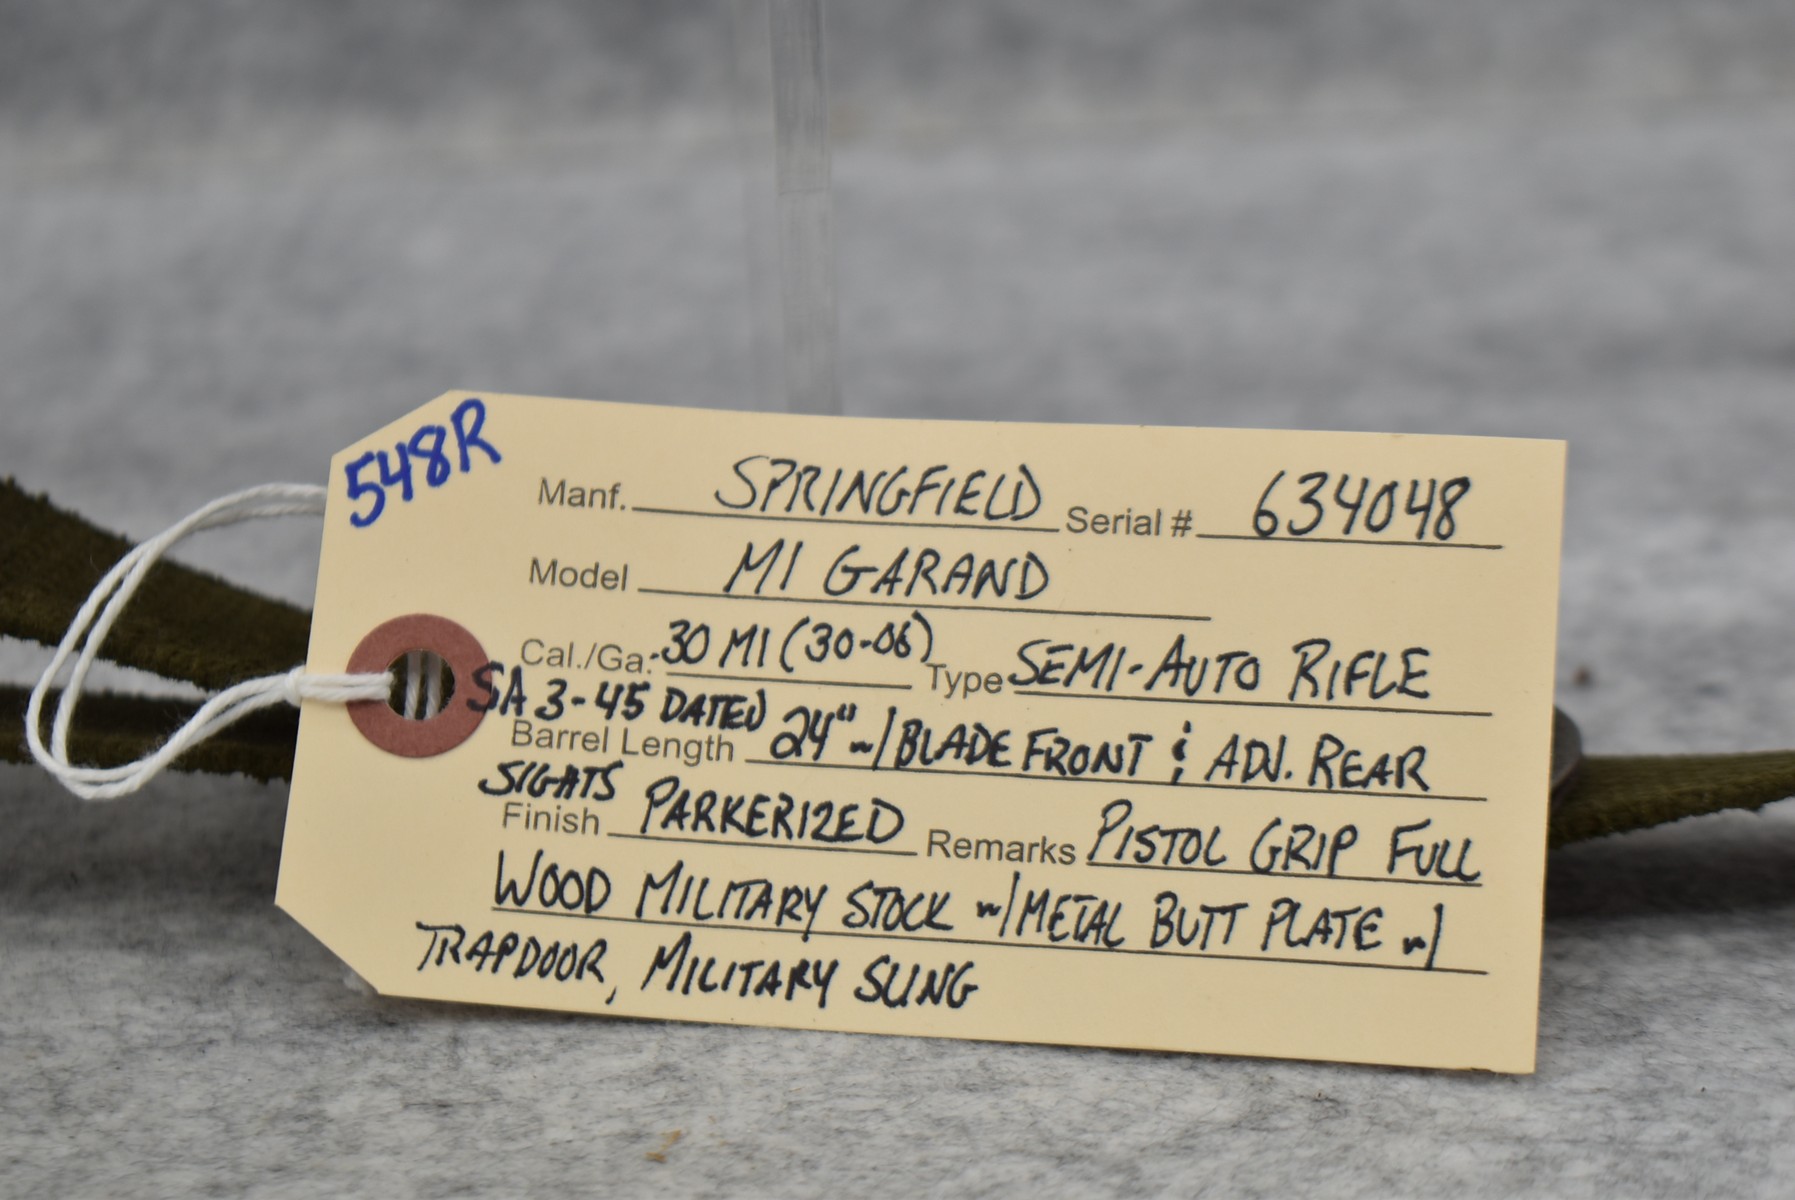 548R
Manf. SPRINGFIELD Serial # 634048
Model M1 GARAND
Cal./Ga. .30 M1 (30-06) Type SEMI-AUTO RIFLE
SA 3-45 DATED
Barrel Length 24" w/ BLADE FRONT & ADJ. REAR
SIGHTS
Finish PARKERIZED Remarks PISTOL GRIP FULL
WOOD MILITARY STOCK w/ METAL BUTT PLATE w/
TRAPDOOR, MILITARY SLING